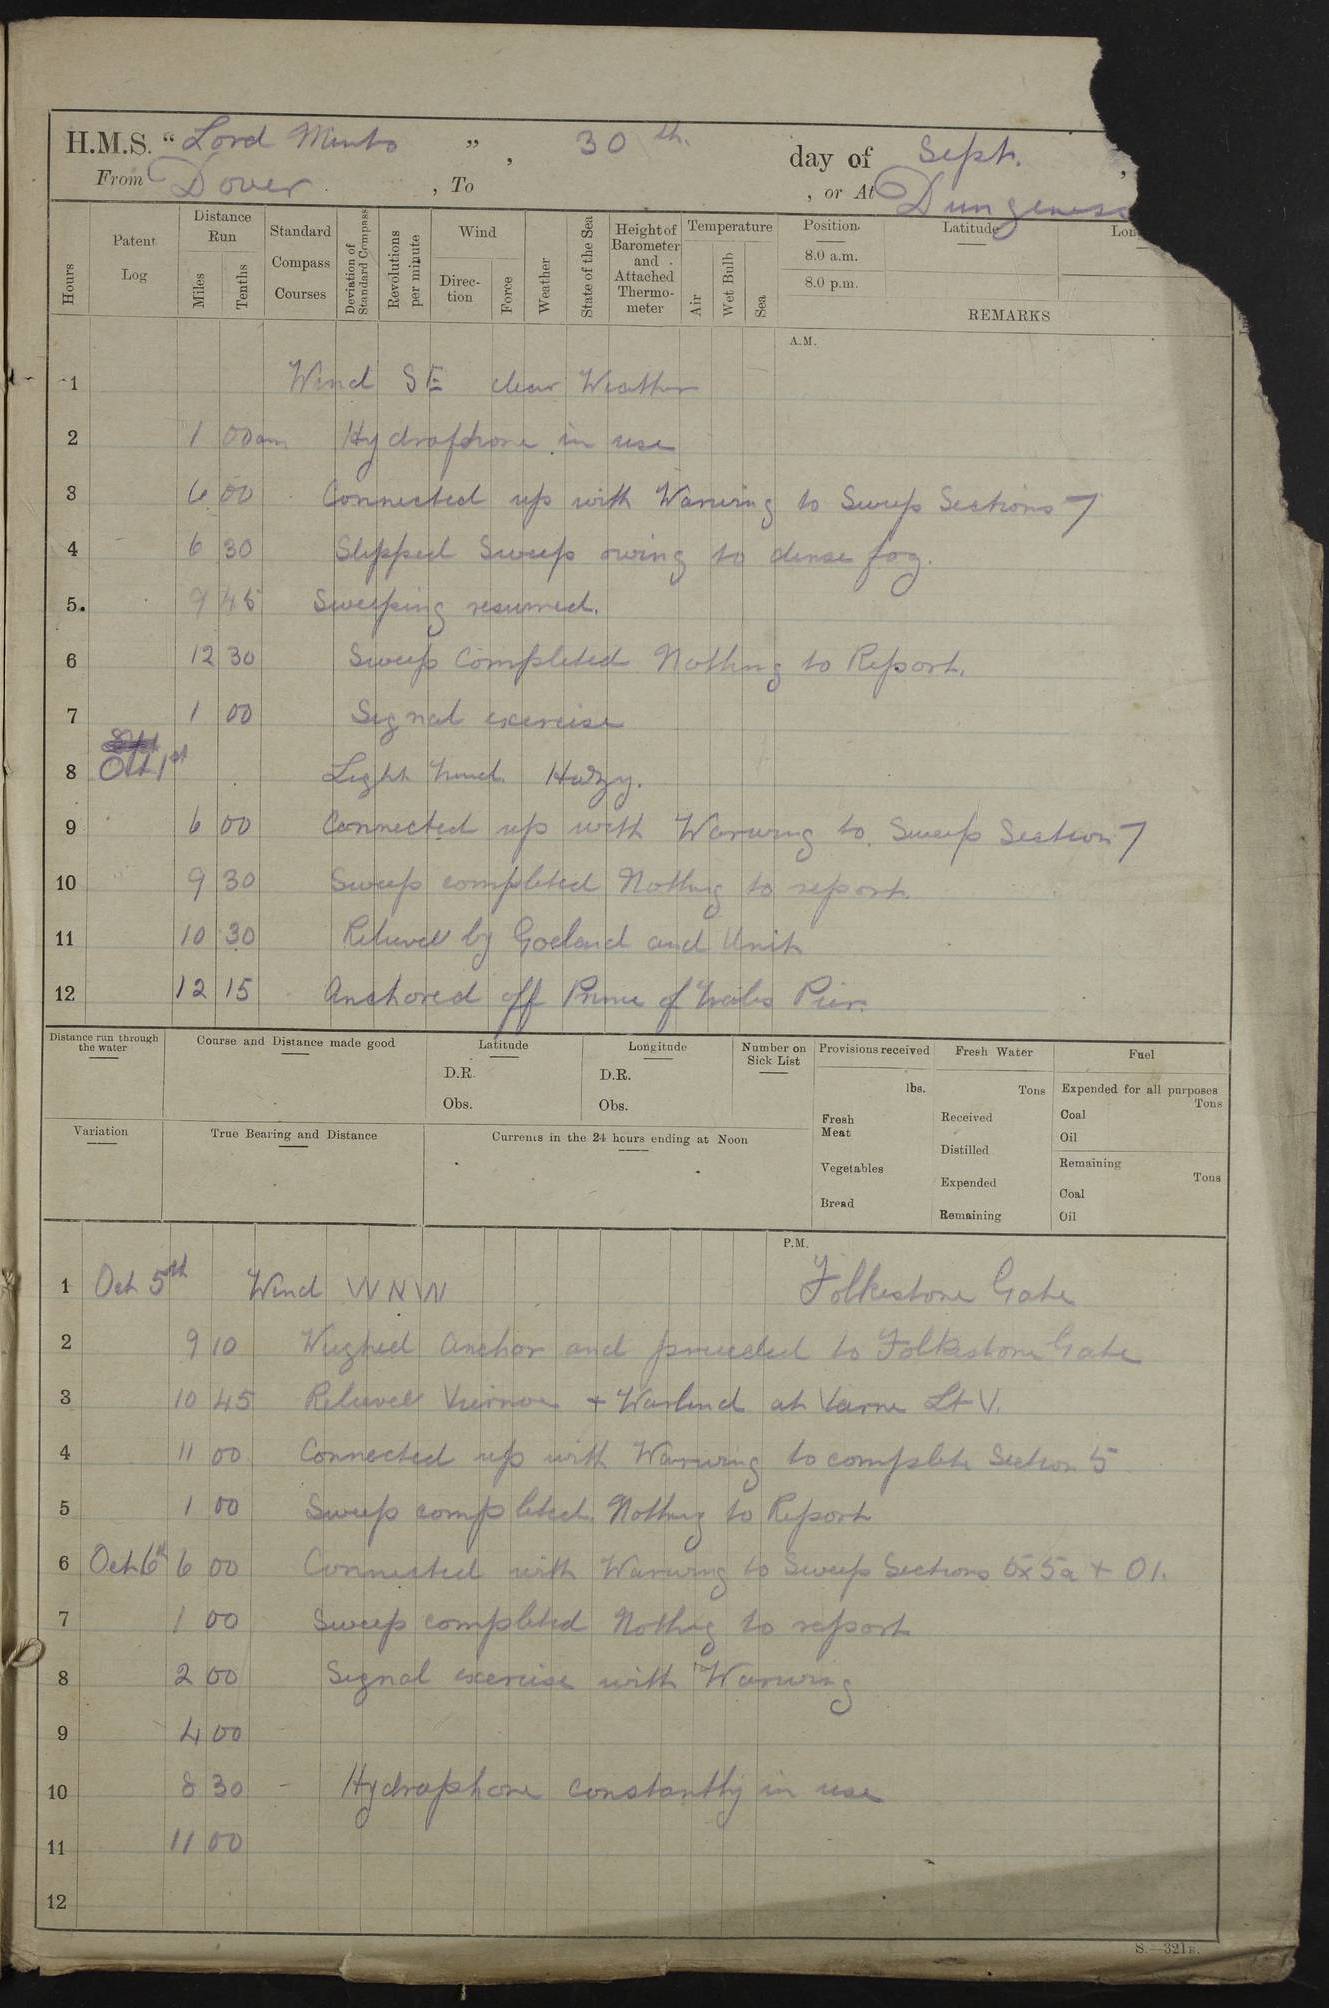 H.M.S. "Lord Minto", 30th. day of Sept.,
From Dover, To , or At Dungeness
Hours
Patent Log
Distance Run
Miles
Tenths
Standard Compass Courses
Deviation of Standard Compass
Revolutions per minute
Wind
Direction
Force
Weather
State of the Sea
Height of Barometer and Attached Thermometer
Temperature
Air
Wet Bulb
Sea
Position
Latitude
Lon
8.0 a.m.
8.0 p.m.
REMARKS
A.M.
1 Wind SE clear Weather
2 1 00am Hydrophone in use
3 6 00 Connected up with Warwing to Sweep Sections 7
4 6 30 Slipped Sweep owing to dense fog.
5. 9 45 Sweeping resumed.
6 12 30 Sweep Completed Nothing to Report.
7 1 00 Signal exercise
8 Oct 1st Light wind Hazy.
9 6 00 Connected up with Warwing to Sweep Section 7
10 9 30 Sweep completed Nothing to report
11 10 30 Relieved by Goeland and Unit
12 12 15 Anchored off Prince of Wales Pier.
Distance run through the water
Course and Distance made good
Latitude
D.R.
Obs.
Longitude
D.R.
Obs.
Number on Sick List
Provisions received
lbs.
Fresh Meat
Vegetables
Bread
Fresh Water
Tons
Received
Distilled
Expended
Remaining
Fuel
Expended for all purposes
Tons
Coal
Oil
Remaining
Tons
Coal
Oil
Variation
True Bearing and Distance
Currents in the 24 hours ending at Noon
P.M.
1 Oct 5th Wind WNW Folkestone Gate
2 9 10 Weighed Anchor and proceeded to Folkestone Gate
3 10 45 Relieved + at Varne Lt V.
4 11 00 Connected up with Warwing to complete Section 5
5 1 00 Sweep completed Nothing to Report
6 Oct 6th 6 00 Connected with Warwing to Sweep Sections 5x 5a + 01.
7 1 00 Sweep completed Nothing to report
8 2 00 Signal exercise with Warwing
9 4 00
10 8 30 - Hydrophone constantly in use
11 11 00
12
S.—321B.